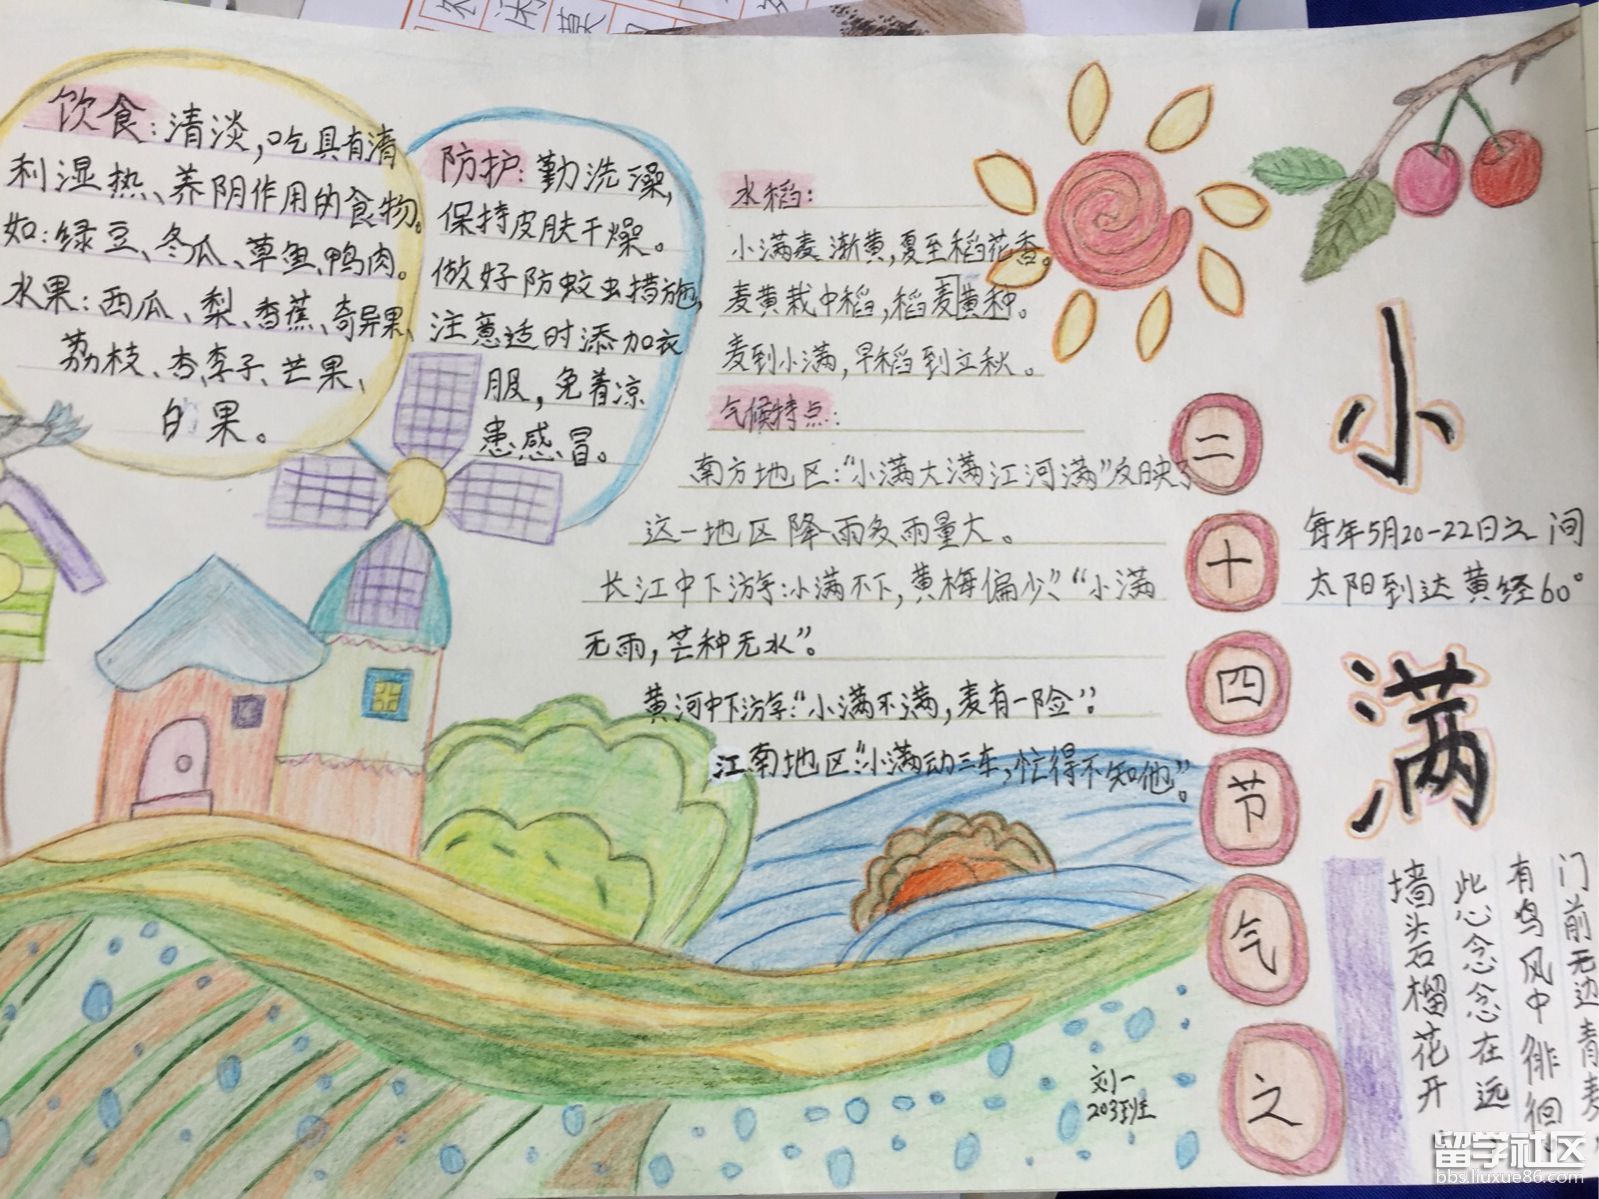 饮食:清淡,吃具有清
利湿热、养阴作用的食物。
如:绿豆、冬瓜、草鱼、鸭肉。
水果:西瓜、梨、香蕉、奇异果、
荔枝、杏、李子、芒果、
的果。
防护:勤洗澡,
保持皮肤干燥。
做好防蚊虫措施,
注意适时添加衣
服,免着凉
患感冒。
水稻:
小满麦渐黄,夏至稻花香。
麦黄栽中稻,稻麦黄种。
麦到小满,早稻到立秋。
气候特点:
南方地区:“小满大满江河满”反映了
这一地区降雨多雨量大。
长江中下游:小满不下,黄梅偏少、“小满
无雨,芒种无水”。
黄河中下游:“小满不满,麦有一险”。
江南地区:“小满动三车,忙得不知他”。
二十四节气之
小满
每年5月20-22日之间
太阳到达黄经60°
门前无边青麦,
有鸟风中徘徊
此心念念在远
墙头石榴花开
刘一
203班
留学社区
bbs.liuxue86.com